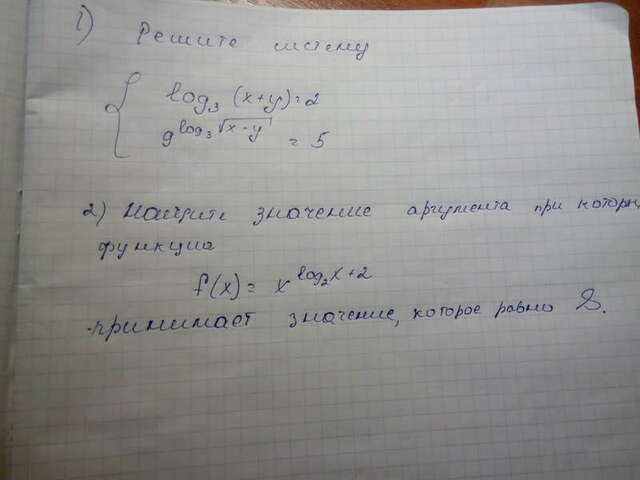 1) Решите систему
log₃ (x+y) = 2
9^{log₃ √(x-y)} = 5
2) Найдите значение аргумента при которы
функция
f(x) = x^{log₂x+2}
принимает значение, которое равно 8.